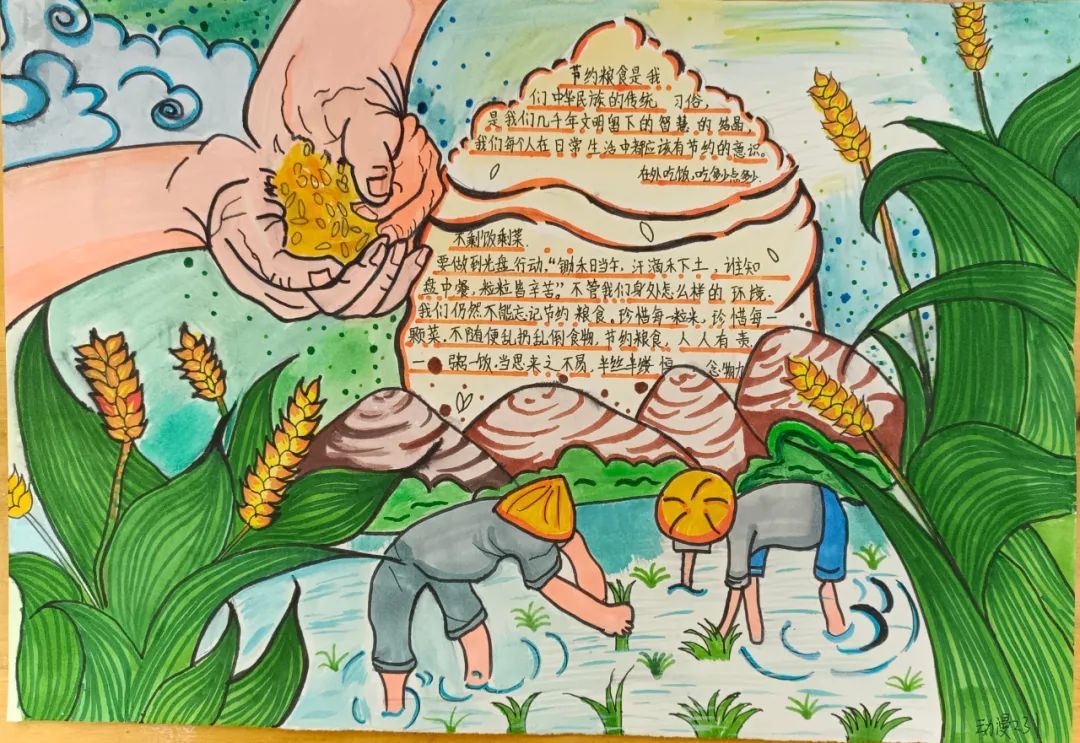 节约粮食是我
们中华民族的传统 习俗,
是我们几千年文明留下的智慧的结晶,
我们每个人在日常生活中都应该有节约的意识。
在外吃饭,吃多少点多少
不剩饭剩菜.
要做到光盘行动,“锄禾日当午,汗滴禾下土,谁知
盘中餐,粒粒皆辛苦”。不管我们身处怎么样的环境.
我们仍然不能忘记节约粮食,珍惜每一粒米,珍惜每一
颗菜.不随便乱扔乱倒食物,节约粮食,人人有责
一 一饭,当思来之不易,半丝半缕 恒 念物力
动漫23